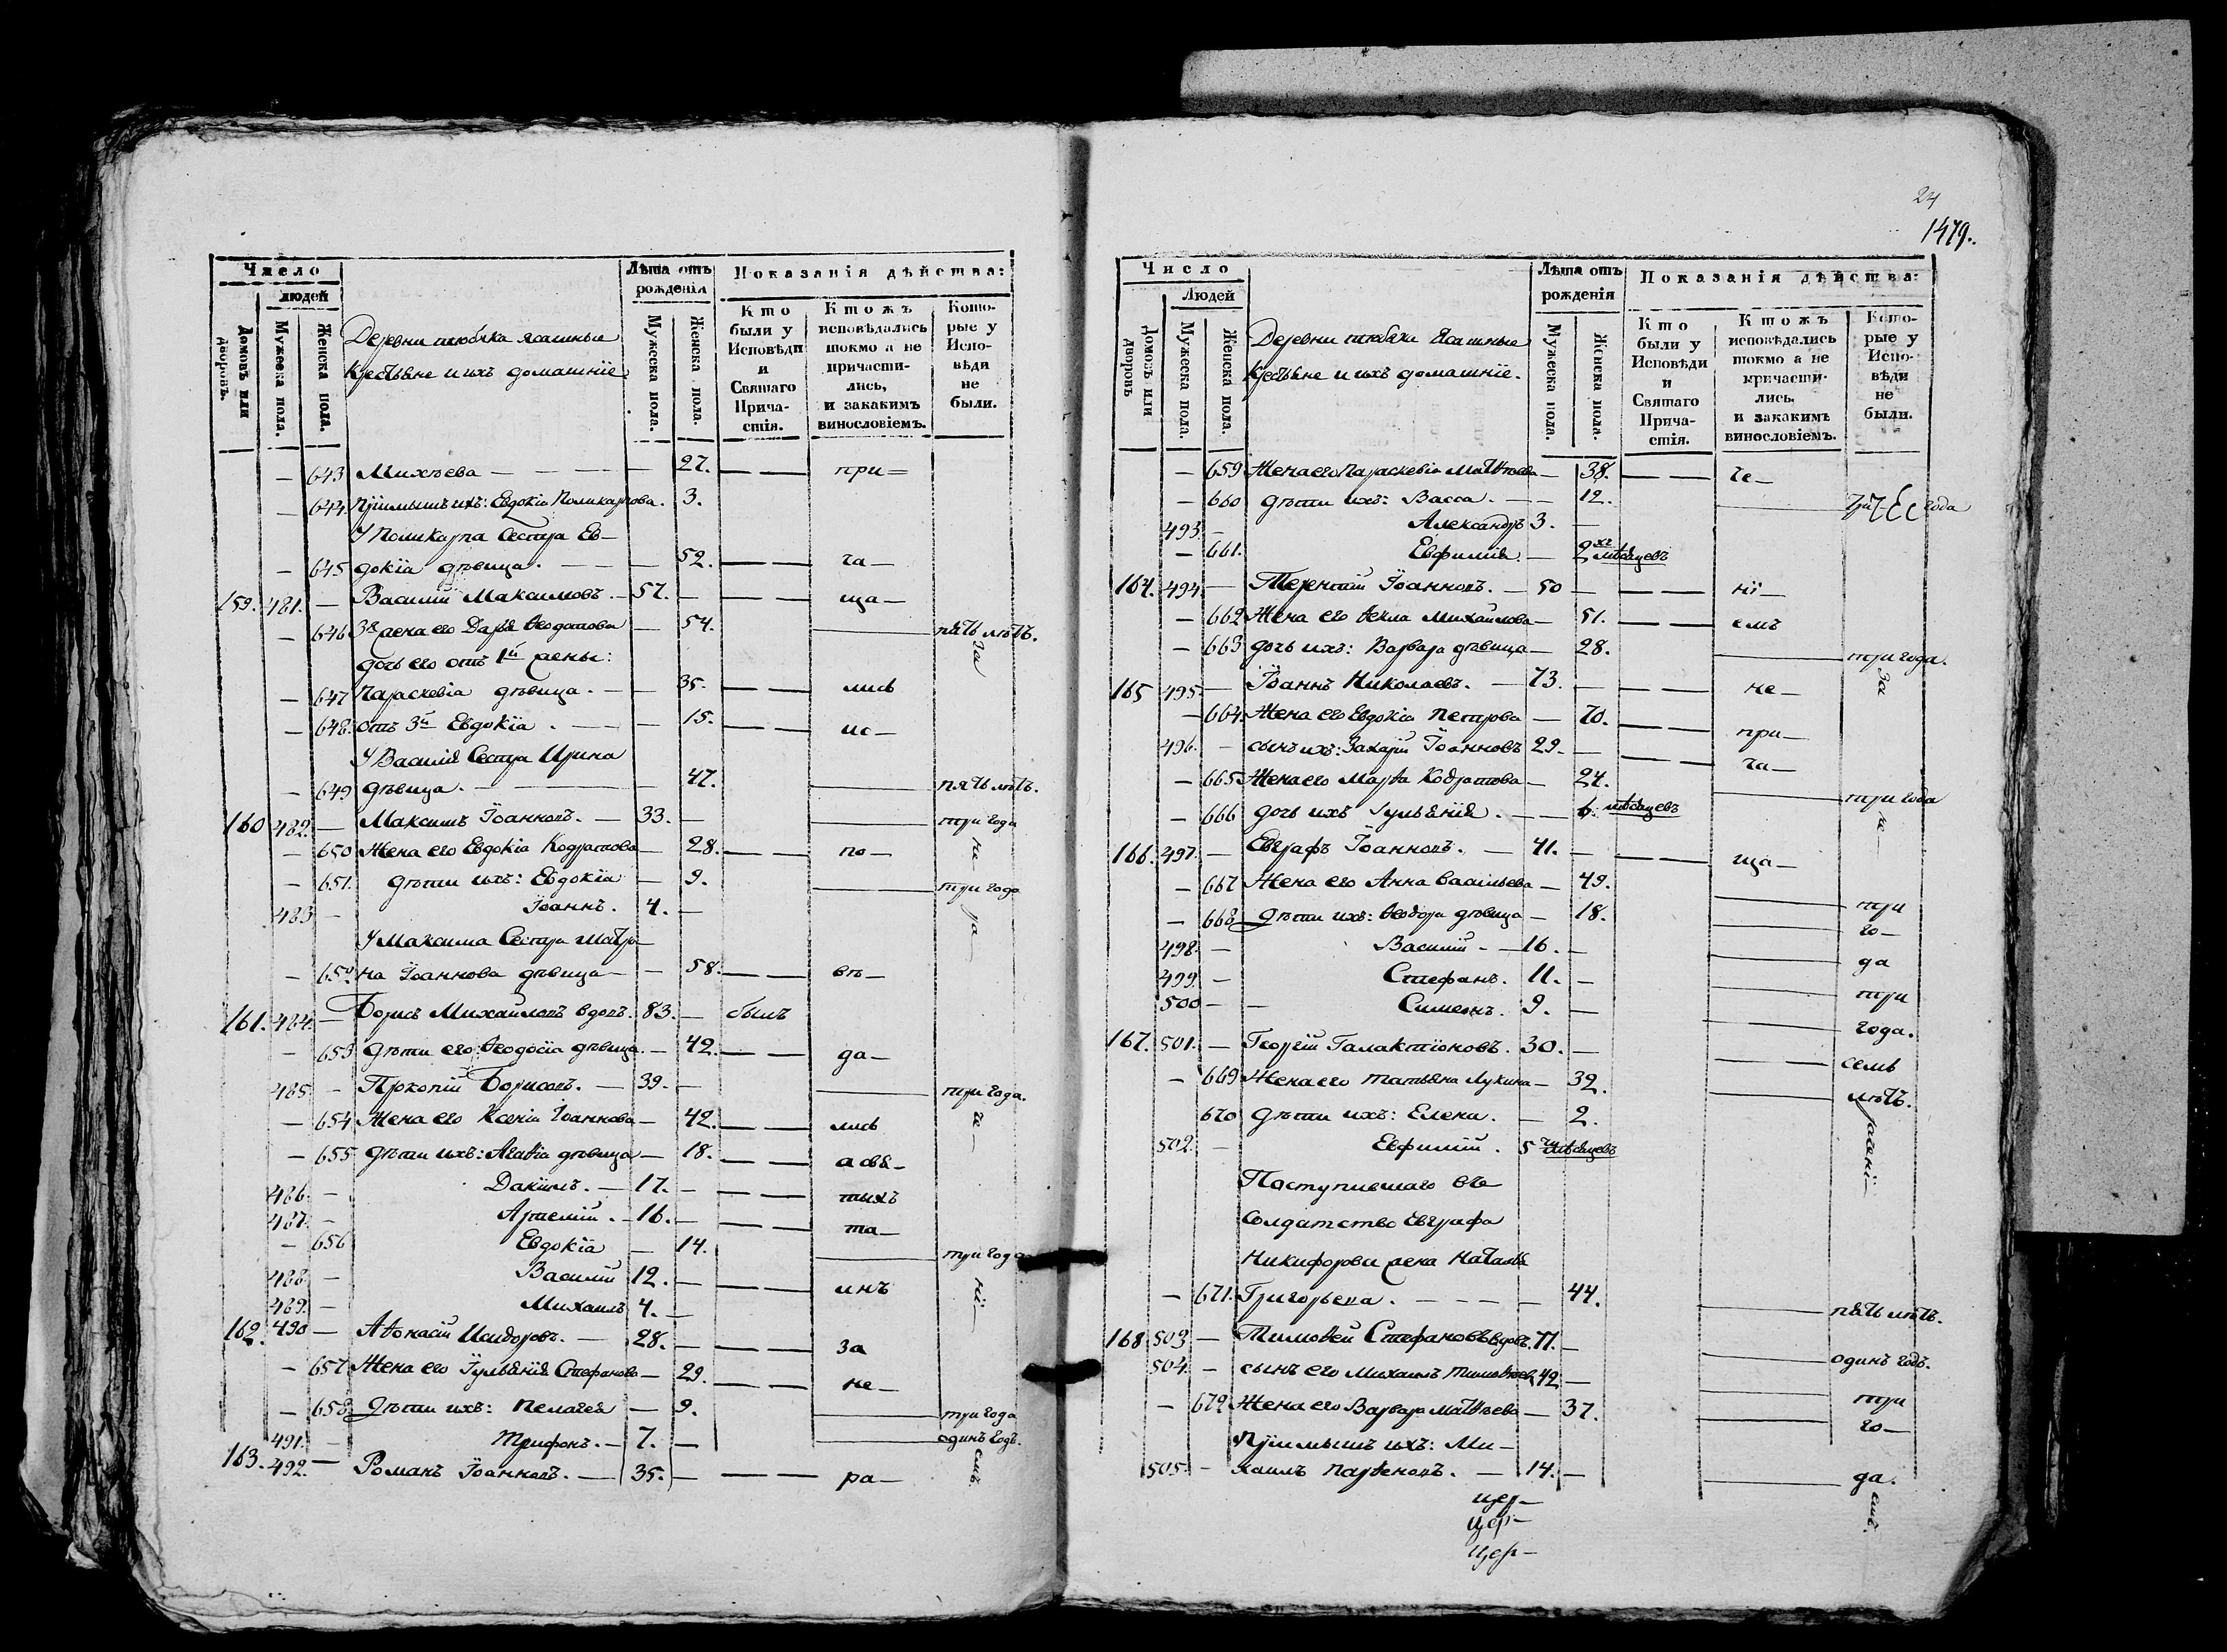 Число
людей
Домовъ или дворовъ.
Мужеска пола.
Женска пола.
Деревни тюбяка ясашныя
крестьяне и ихъ домашнїе
Лѣта отъ
рожденїя
Мужеска пола.
Женска пола.
Показанїя дѣйства:
Кто
были у
Исповѣди
и
Святаго
Прича-
стїя.
Ктожъ
исповѣдались
токмо а не
причасти-
лись,
и закакимъ
винословїемъ.
Кото-
рые у
Испо-
вѣди
не
были.
— 643 Михѣева — — — — 27. — — при=
— 644 Прїимышъ ихъ: Евдокїа Поликарпова. 3.
У Поликарпа Сестра Ев-
— 645 докїа дѣвица. — — 52. — — ча—
159. 481. — Василїй Максимовъ. — 57. — — — ща—
— 646 3я жена его Дарья Ѳеодотова — 54. — пять лѣтъ.
дочь его отъ 1й жены: За
— 647 Параскевїа дѣвица. — — 35. — — лись
— 648. отъ 3й Евдокїа . — — 15. — — ис—
У Василїя Сестра Ирина
— 649 дѣвица. — — 47. — пять лѣтъ.
160 482. — Максимъ Їоанновъ. — 33. — — три года
— 650 Жена его Евдокїа Кодратова — 28. — — по— не
— 651. дѣти ихъ: Евдокїа — 9. — три года
483 — Їоаннъ. 4. —
У Максима Сестра Матро- ра
— 652 на Їоаннова дѣвица — — 58. — — вѣ—
161. 484. — Борисъ Михайловъ вдовъ. 83. — былъ
— 653 дѣти его: Ѳеодосїа дѣвица. — 42. — — да—
485 — Прокопїй Борисовъ. — 39. — — три года.
— 654 Жена его Ксенїа Їоаннова — 42. — — лись че
— 655 дѣти ихъ: Агаѳїа дѣвица — 18. — — а свя-
486. — Данїилъ. — 17. — — — тыхъ
487. — Артемїй. — 16. — — — та—
— 656 Евдокїа — 14. — три года
488 — Василїй 12. — — — инъ
489. — Михаилъ 4. — нї
162. 490 — Аѳонасїй Исидоровъ. — 28. — — — За
— 657 Жена его Їульянїя Стефанова — 29. — — не—
— 658 Дѣти ихъ: Пелагея — 9. — три года
491. — Трифонъ. — 7. — — одинъ годъ.
163. 492. — Романъ Їоанновъ. — 35. — — — ра— емъ
24
1479.
Число
Людей
Домовъ или дворовъ
Мужеска пола.
Женска пола.
Деревни тюбяки Ясашные
крестьяне и ихъ домашнїе.
Лѣта отъ
рожденїя
Мужеска пола.
Женска пола.
Показанїя дѣйства:
Кто
были у
Исповѣди
и
Святаго
Прича-
стїя.
Ктожъ
исповѣдались
токмо а не
причасти-
лись.
и закакимъ
винословїемъ.
Кото-
рые у
Испо-
вѣди
не
были.
— 659 Жена его Параскевїа Матвѣева — 38. — — че—
— 660 дѣти ихъ: Васса. — — 12. — три года
493 — Александръ 3. —
— 661. Евфимїя. — 2хъ мѣсяцевъ
164. 494 — Терентїй Їоанновъ. — 50 — — — нї—
— 662 Жена его Ѳекла Михайлова — 51. — — емъ
— 663 дочь ихъ: Варвара дѣвица — 28. — три года.
165 495 — Їоаннъ Николаевъ. — 73. — — — не— За
— 664. Жена его Евдокїа Петрова — 70. — — при—
496. — сынъ ихъ: Захарїй Їоанновъ 29. — — — ча—
— 665 Жена его Марѳа Кодратова — 24. — три года
— 666 дочь ихъ Їульянїя. — — 6. мѣсяцевъ не
166. 497. — Евграфъ Їоанновъ. — 41. — — — ща—
— 667 Жена его Анна Васильева — 49. — три
— 668 Дѣти ихъ: Ѳеодора дѣвица — 18. — го—
498. — Василїй — 16. — — да
499. — Стефанъ. 11. — — три
500 — — Симеонъ. 9. — — года.
167. 501. — Георгїй Галактїоновъ. 30. — — — семь
— 669 Жена его Татьяна Лукина — 32. — лѣтъ.
670 дѣти ихъ: Елена. — 2.
502. — Евфимїй . 5 мѣсяцевъ
Поступившаго въ
Солдатство Евграфа
Никифорова жена Наталья
— 671. Григорьева. — — — — 44. — пять лѣтъ.
168 503 — Тимоѳей Стефановъ вдовъ. 77. — — одинъ годъ.
504. — сынъ его Михаилъ Тимоѳеевъ 42 — — три
— 672 Жена его Варвара Матвѣева — 37. — го—
Прїимышъ ихъ: Ми—
505. — хаилъ Парѳеновъ. — 14. — — да.
емъ.
цер—
цер—
цер—